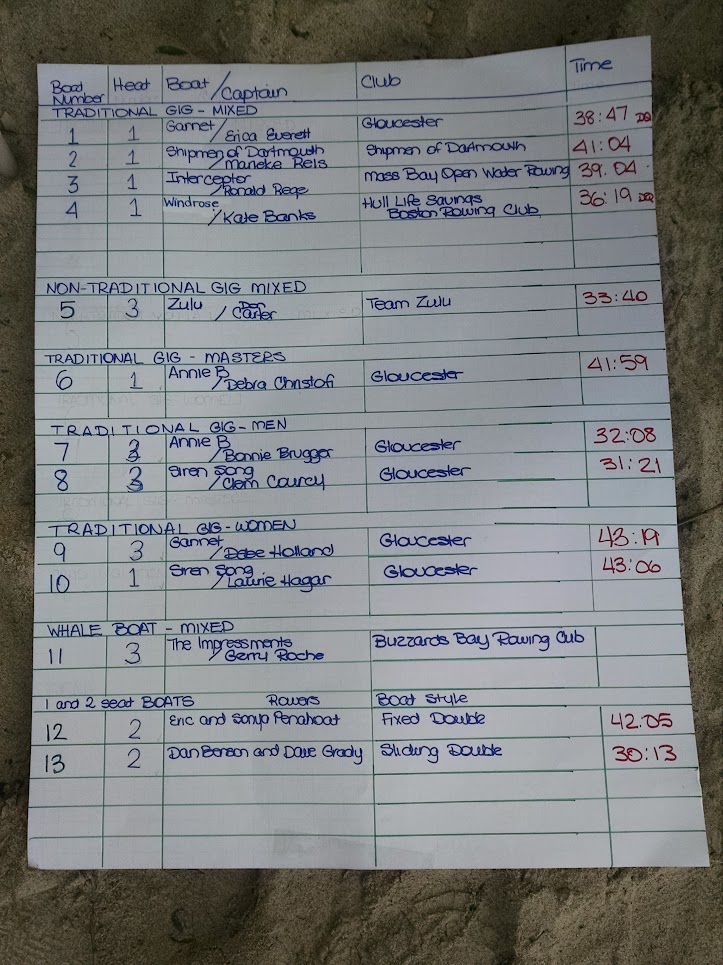 Boat Number Heat Boat / Captain Club Time
TRADITIONAL GIG - MIXED
1 1 Gannet / Erica Everett Gloucester 38:47 DQ
2 1 Shipmen of Dartmouth / Marieke Reis Shipmen of Dartmouth 41:04
3 1 Interceptor / Ronald Rege Mass Bay Open Water Rowing 39.04
4 1 Windrose / Kate Banks Hull Life Savings Boston Rowing Club 36:19 DQ
NON-TRADITIONAL GIG MIXED
5 3 Zulu / Carter Team Zulu 33:40
TRADITIONAL GIG - MASTERS
6 1 Annie B / Debra Christofi Gloucester 41:59
TRADITIONAL GIG - MEN
7 3 Annie B / Bonnie Brugger Gloucester 32:08
8 3 Siren Song / Clem Courcy Gloucester 31:21
TRADITIONAL GIG - WOMEN
9 3 Gannet / Holland Gloucester 43:19
10 1 Siren Song / Laurie Hagar Gloucester 43:06
WHALE BOAT - MIXED
11 3 The Impressments / Gerry Roche Buzzards Bay Rowing Cub
1 and 2 seat BOATS Rowers Boat Style
12 2 Eric and Sonya Penahoat Fixed Double 42.05
13 2 Dan Benson and Dave Grady Sliding Double 30:13